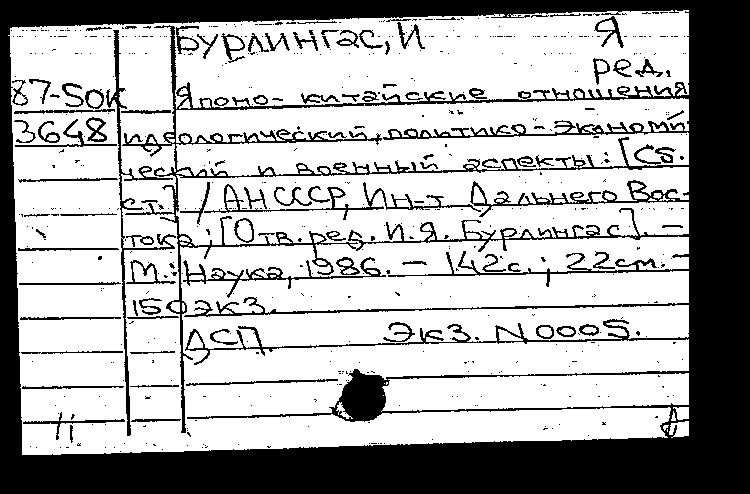 БУРЛИНГАС, И Я
ред.
87-50К Японо-китайские отношения
3648 идеологический, политико-экономи
ческий и военный аспекты: [Сб.
ст.] / АН СССР, Ин-т Дальнего Вос-
тока; [Отв. ред. И.Я. Бурлингас]. -
М.: Наука, 1986. - 142с.; 22см. -
150 экз.
ДСП. Экз. N 0005.
11